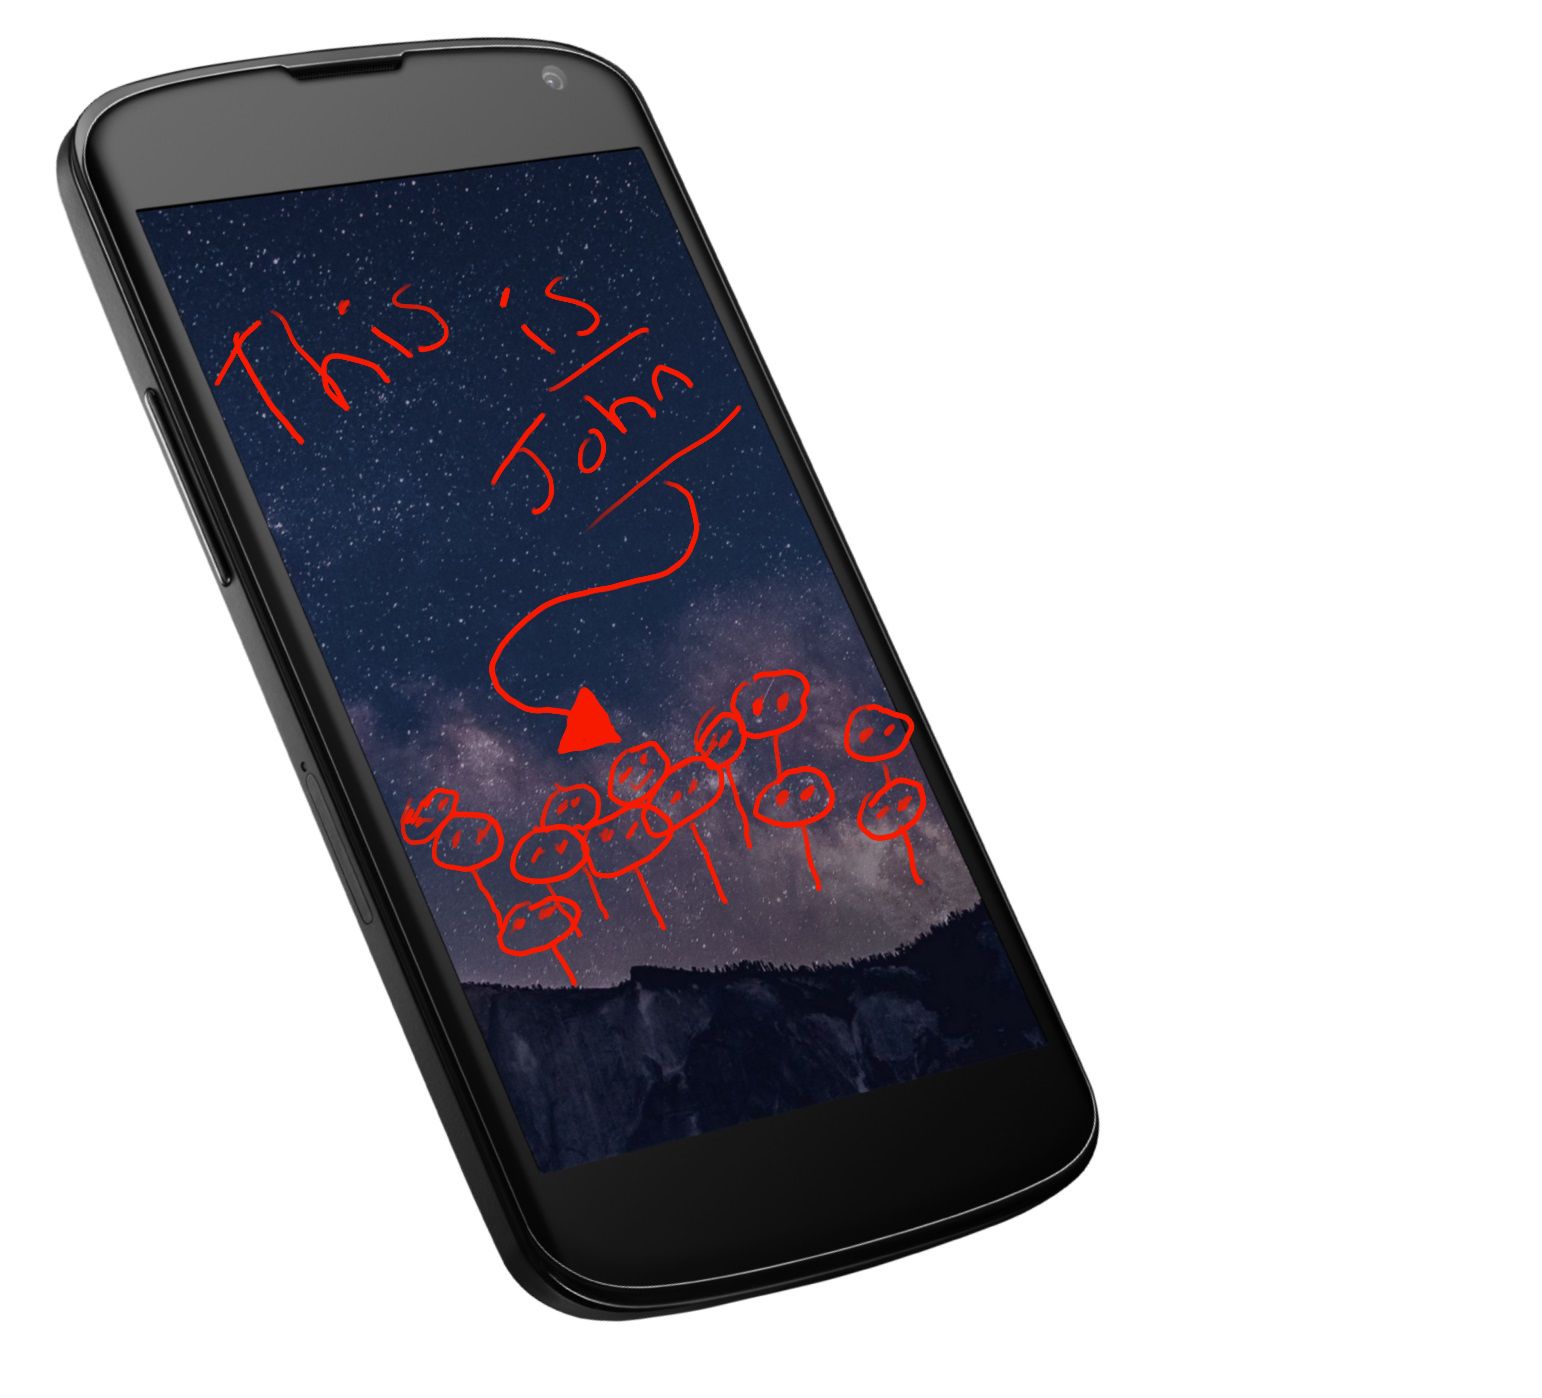 This is
John